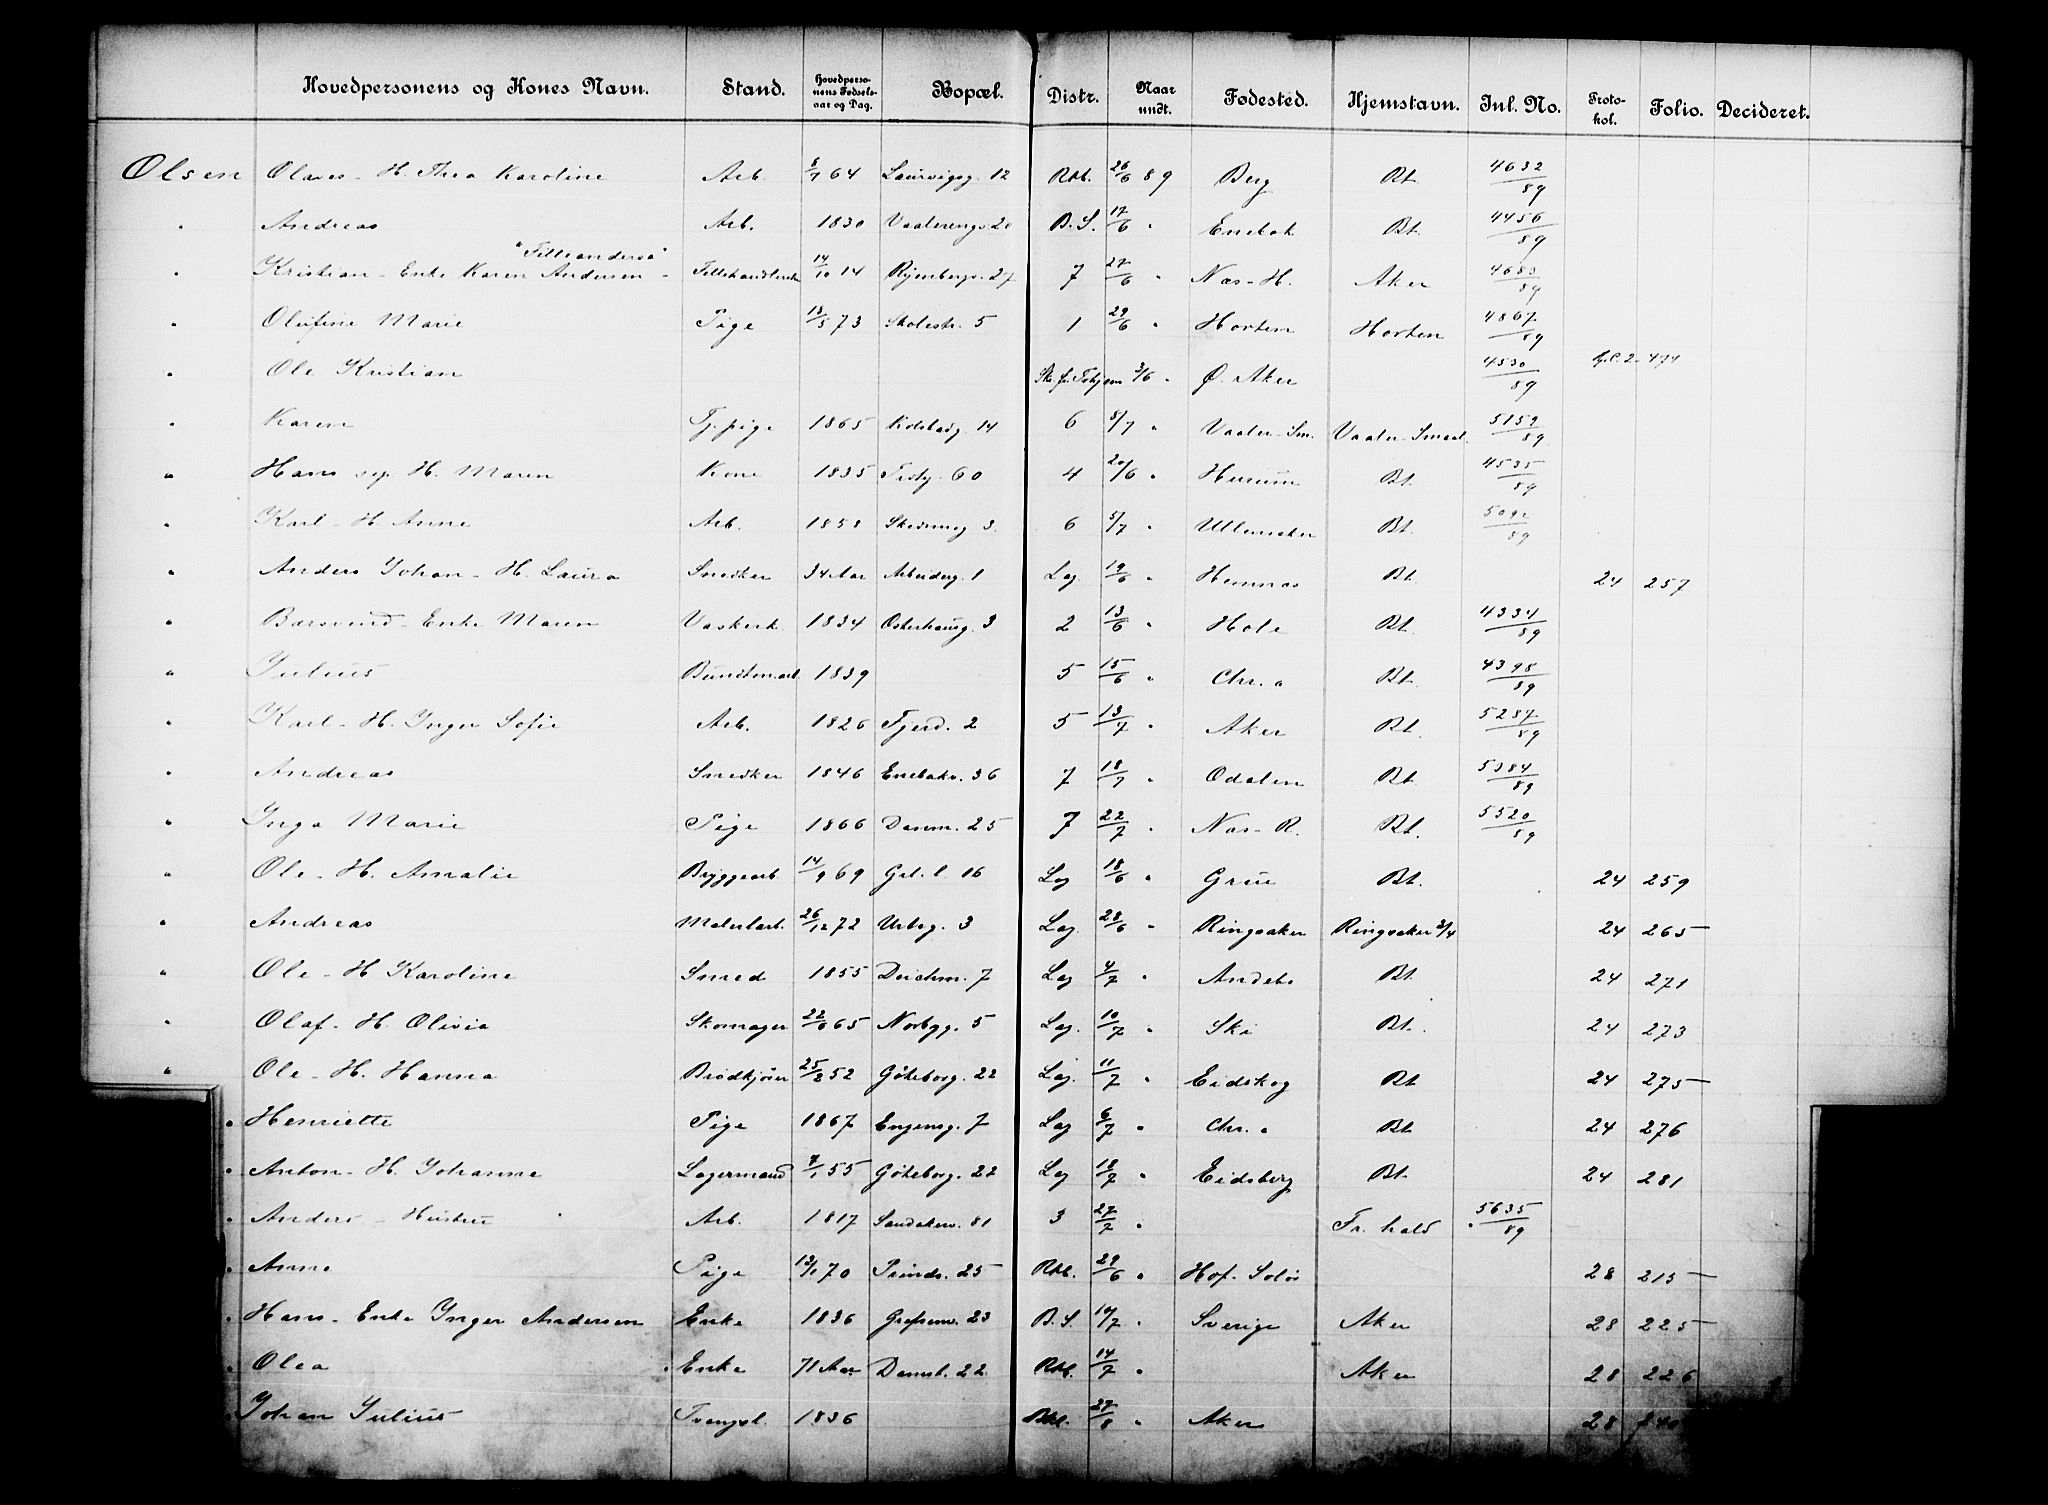 Hovedpersonens og Kones Navn. Stand. Hovedpersonens Fødselsaar og Dag. Bopæl. Distr. Naar undt. Fødested. Hjemstavn. Inl. No. Protokol. Folio. Decideret.
Olsen Olaves - H. Thea Karoline Arb. 8/7 64 Laurvigsg. 12 Rbl. 26/6 89 Berg Bt. 4632/89
" Andreas Arb. 1830 Vaalerengs 20 B.S. 17/6 " Enebak Bt. 4456/89
"Filleanders"
" Kristian - Enke Karen Andersen - Fillehandlerske 14/10 14 Ryenbergv. 27 7 27/6 " Næs-H. Aker 4683/89
" Olufine Marie Pige 13/5 73 Skolestr. 5 1 29/6 " Horten Horten 4867/89
" Ole Kristian 3/6 " Ø. Aker 4530/89 474
" Karen Tj.pige 1865 14 6 8/7 " Vaaler-Sm. Vaaler-Smaal. 5159/89
" Hans H. Maren Kone 1835 60 4 20/6 " Hurum Bt. 4535/89
" Karl - H. Anne Arb. 1858 3 6 5/7 " Ullensaker Bt. 5092/89
" Anders Johan - H. Laura Snedker 34 Aar Arbeiderg. 1 Lag. 19/6 " Hemnæs Bt. 24 257
" Barsvend - Enke Maren Vaskerk. 1834 Osterhausg. 3 2 13/6 " Hole Bt. 4334/89
" Julius Bundtm.arb. 1839 5 15/6 " Chr.a Bt. 4398/89
" Karl - H. Inger Sofie Arb. 1826 Fjerd. 2 5 13/7 " Aker Bt. 5287/89
" Andreas Snedker 1846 Enebakv. 36 7 18/7 " Odalen Bt. 5384/89
" Inga Marie Pige 1866 Danm. 25 7 22/7 " Næs-R. Bt. 5520/89
" Ole - H. Amalie Bryggearb. 14/9 69 Grl. l. 16 Lag 18/6 " Grue Bt. 24 259
" Andreas Malerlærl. 26/12 72 Urteg. 3 Lag. 28/6 " Ringsaker Ringsaker 3/4 24 265
" Ole - H Karoline Smed 1855 Deichm. 7 Lag 4/7 " Andebo Bt. 24 271
" Olaf - H. Olivia Skomager 22/6 65 Norbyg. 5 Lag. 10/7 " Ski Bt. 24 273
" Ole - H. Hanna Brødkjører 25/2 52 Göteborg. 22 Lag. 11/7 " Eidskog Bt 24 275
" Henriette Pige 1867 Engensg. 7 Lag 6/7 " Chr.a Bt 24 276
" Anton - H. Johanne Lagermand 7/1 55 Göteborg. 22 Lag 18/7 " Eidsberg Bt. 24 281
" Anders - Hustru Arb. 1817 Sandakerv. 81 3 27/7 " Fr.hald 5635/89
" Anne Pige 13/1 70 Prinds. 25 Rbl. 29/6 " Hof-Solør 28 215
" Hans - Enke Inger Andersen Enke 1836 Grefsenv. 23 B.S. 10/7 " Sverige Aker 28 225
" Olea Enke 71 Aar Damst. 22 Rbl. 14/7 " Aker 28 226
" Johan Julius Tvangsl. 1836 Rbl. 27/8 " Aker 28 240